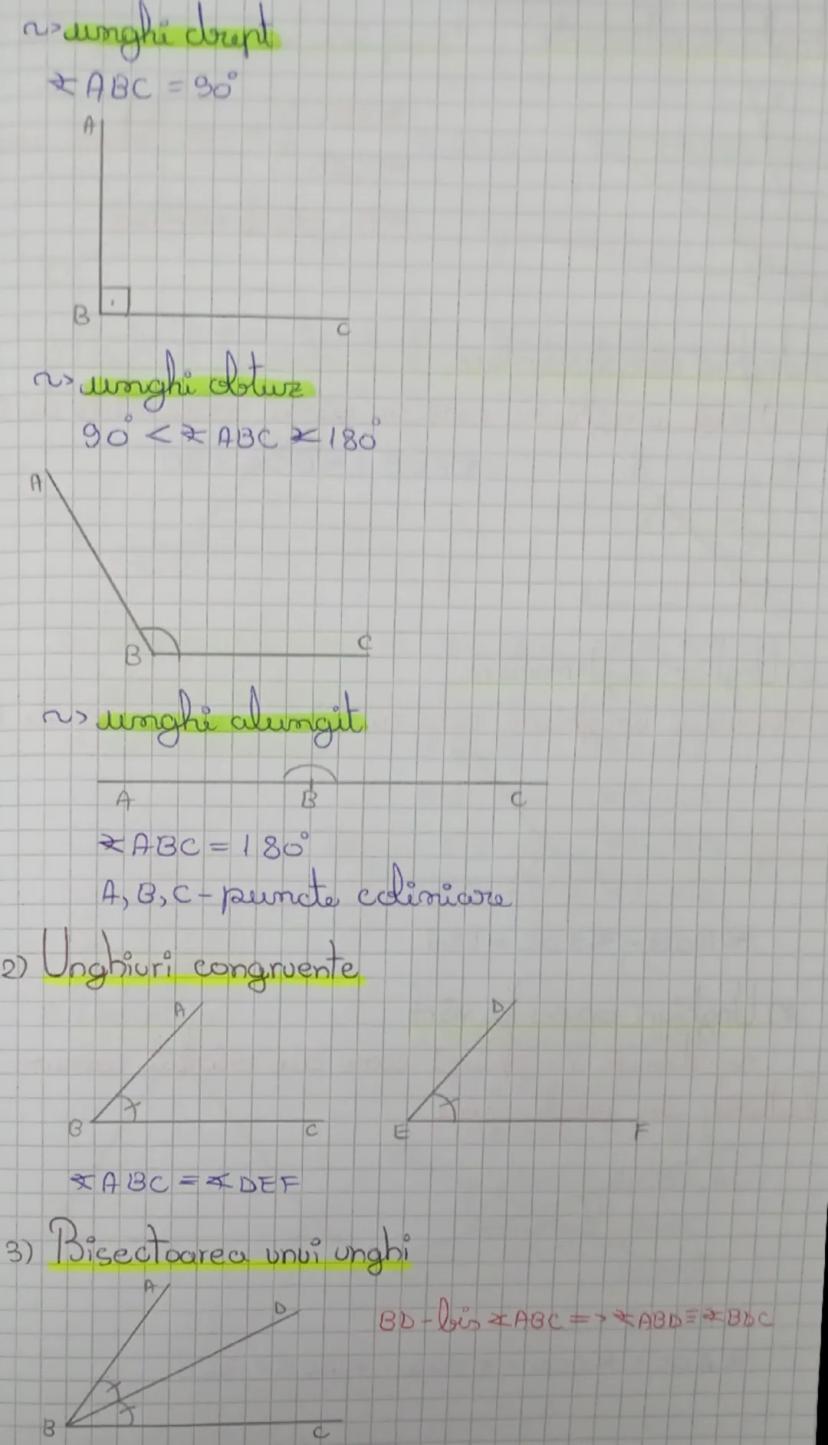 ~> unghi drept
∢ABC = 90°
A
B
C
~> unghi obtuz
90° < ∢ABC < 180°
A
B
C
~> unghi alungit
A B C
∢ABC = 180°
A, B, C - puncte coliniare
2) Unghiuri congruente
A D
B C E F
∢ABC = ∢DEF
3) Bisectoarea unui unghi
A
D
BD - bis ∢ABC => ∢ABD ≡ ∢BDC
B C